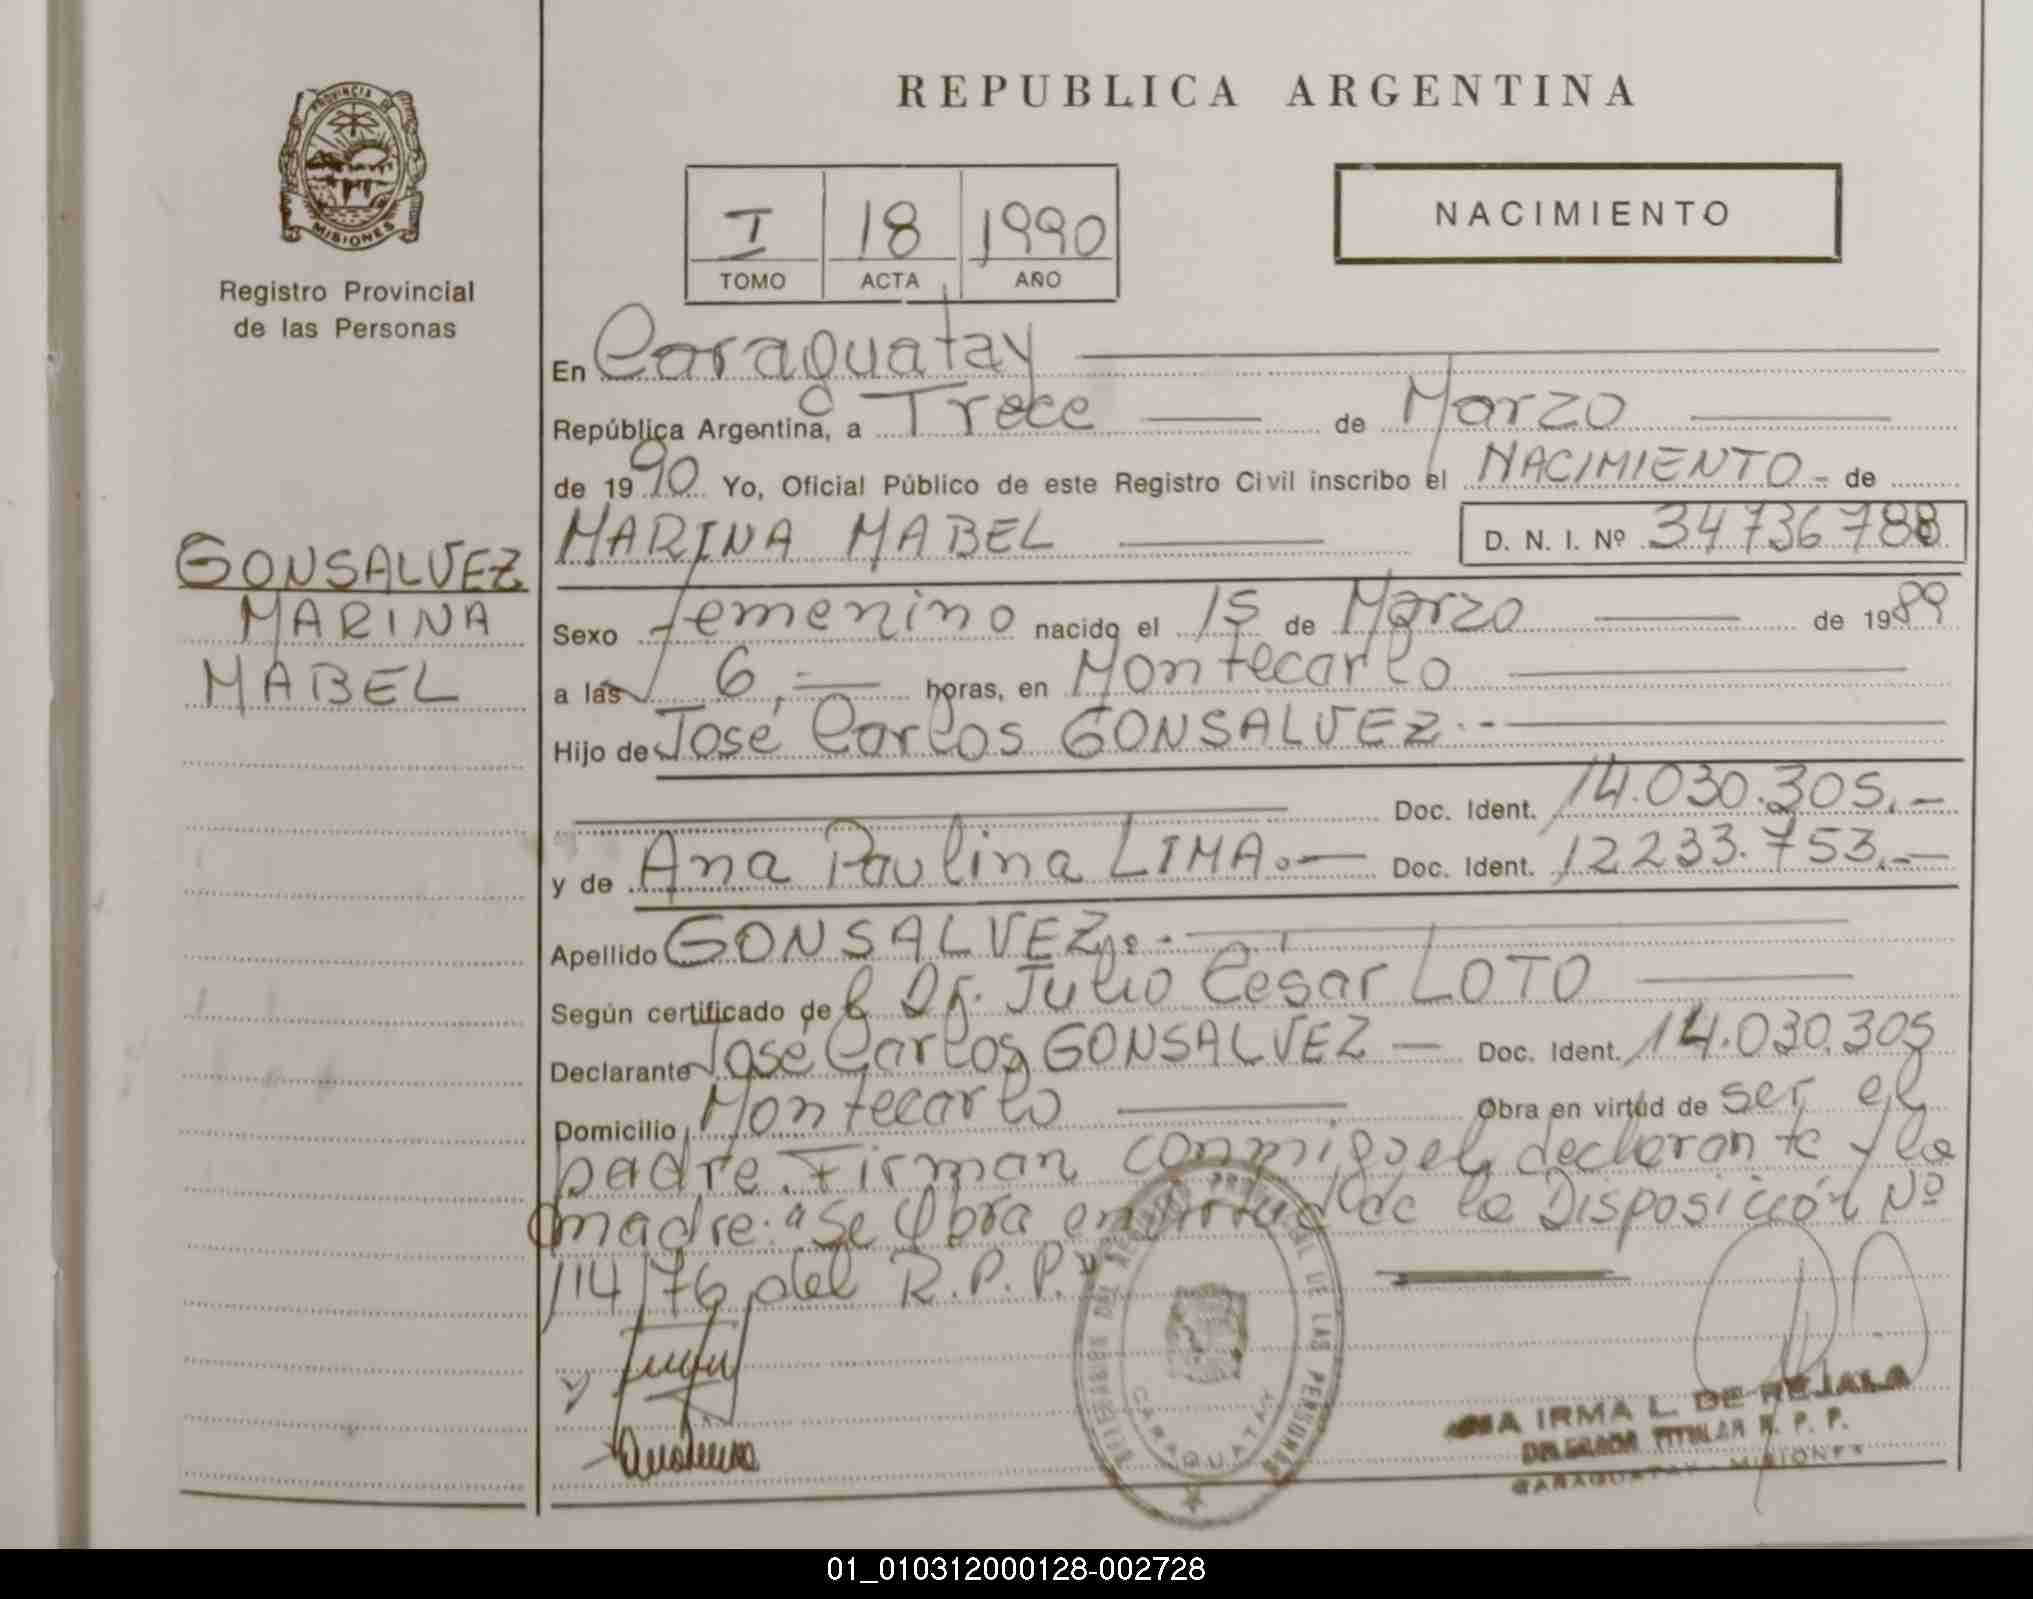 REPUBLICA ARGENTINA
PROVINCIA DE
MISIONES
Registro Provincial
de las Personas
NACIMIENTO
I 18 1990
TOMO ACTA AÑO
En Caraguatay
República Argentina, a Trece de Marzo
de 1990 Yo, Oficial Público de este Registro Civil inscribo el NACIMIENTO - de
GONSALVEZ
MARINA
MABEL
MARINA MABEL D. N. I. Nº 34736788
Sexo femenino nacido el 15 de Marzo de 1989
a las 6,- horas, en Montecarlo
Hijo de José Carlos GONSALVEZ.-
Doc. Ident. 14.030.305.-
y de Ana Paulina LIMA.- Doc. Ident. 12233.753.-
Apellido GONSALVEZ.-
Según certificado del Dr. Julio César LOTO
Declarante José Carlos GONSALVEZ - Doc. Ident. 14.030.305
Domicilio Montecarlo Obra en virtud de ser el
padre. Firman conmigo el declarante y la
madre: "Se Obra en virtud de la Disposición Nº
114/76 del R.P.P."
REGISTRO PROVINCIAL DE LAS PERSONAS
CARAGUATAY
IRMA L. DE REJALA
DELEGADA TITULAR R. P. P.
CARAGUATAY - MISIONES
01_010312000128-002728